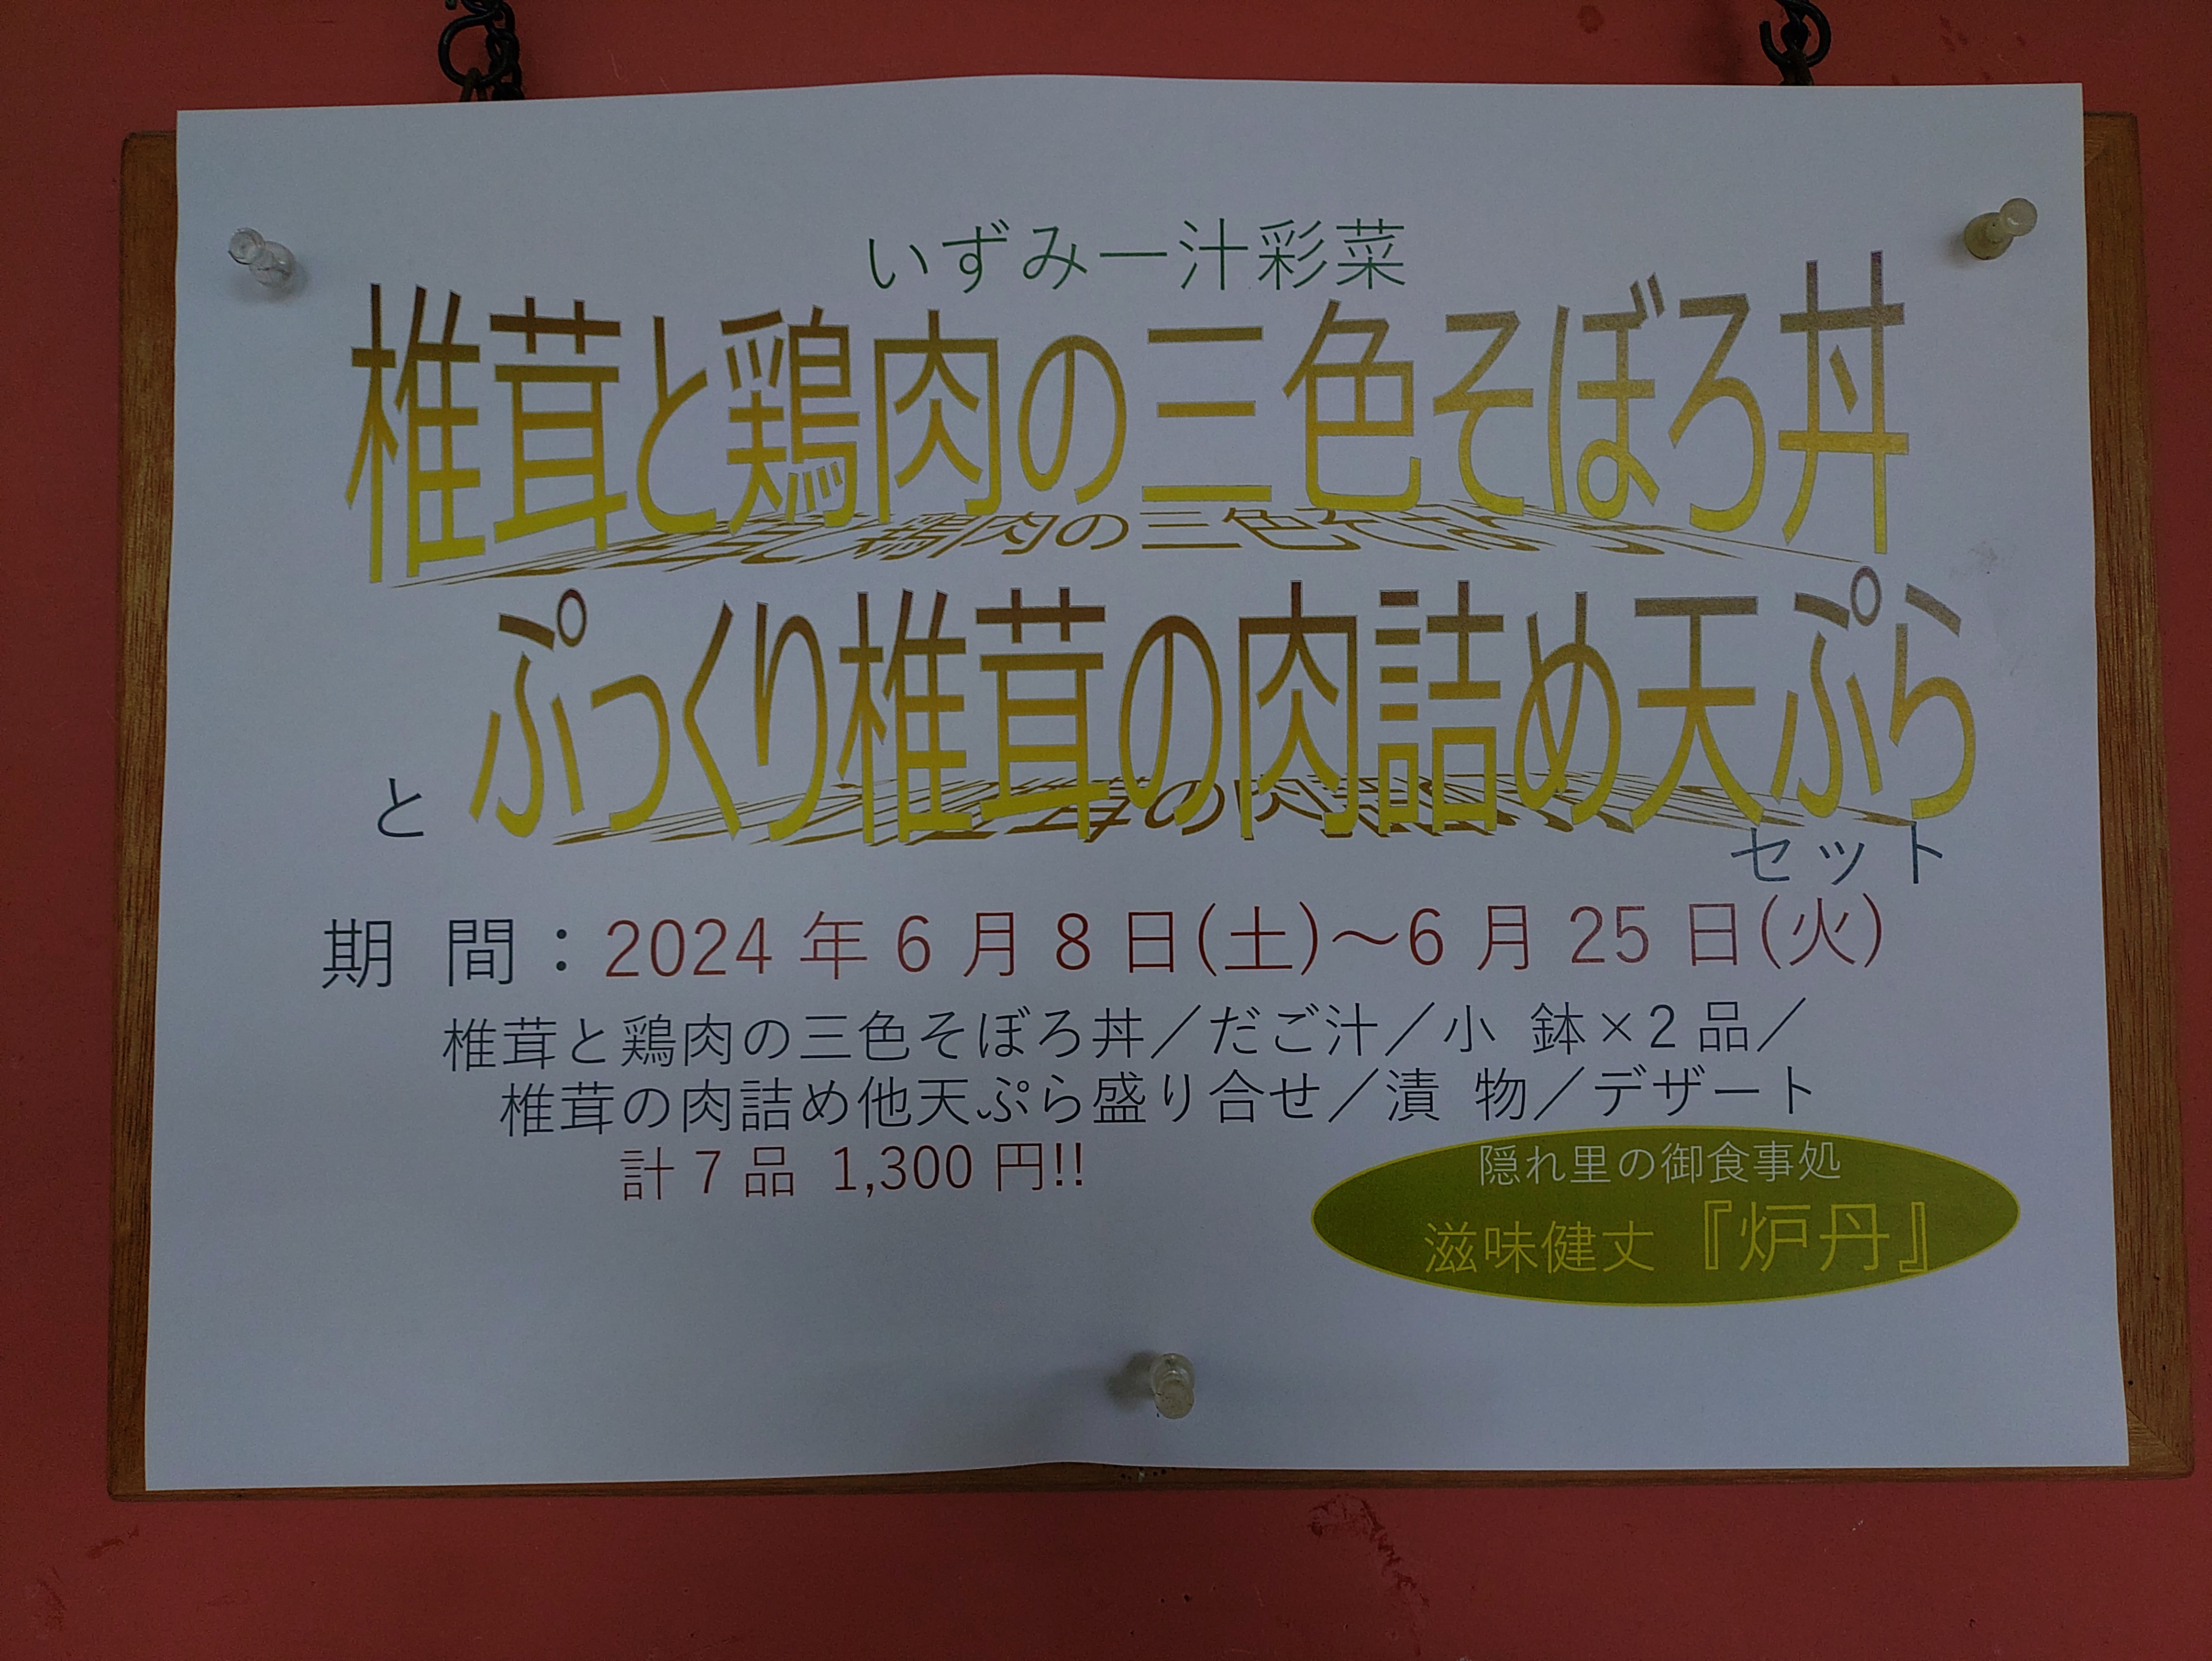 いずみ一汁彩菜
椎茸と鶏肉の三色そぼろ丼
と ぷっくり椎茸の肉詰め天ぷら
セット
期 間：2024 年 6 月 8 日(土)～6 月 25 日(火)
椎茸と鶏肉の三色そぼろ丼／だご汁／小 鉢×2 品／
椎茸の肉詰め他天ぷら盛り合せ／漬 物／デザート
計 7 品 1,300 円!!
隠れ里の御食事処
滋味健丈『炉丹』